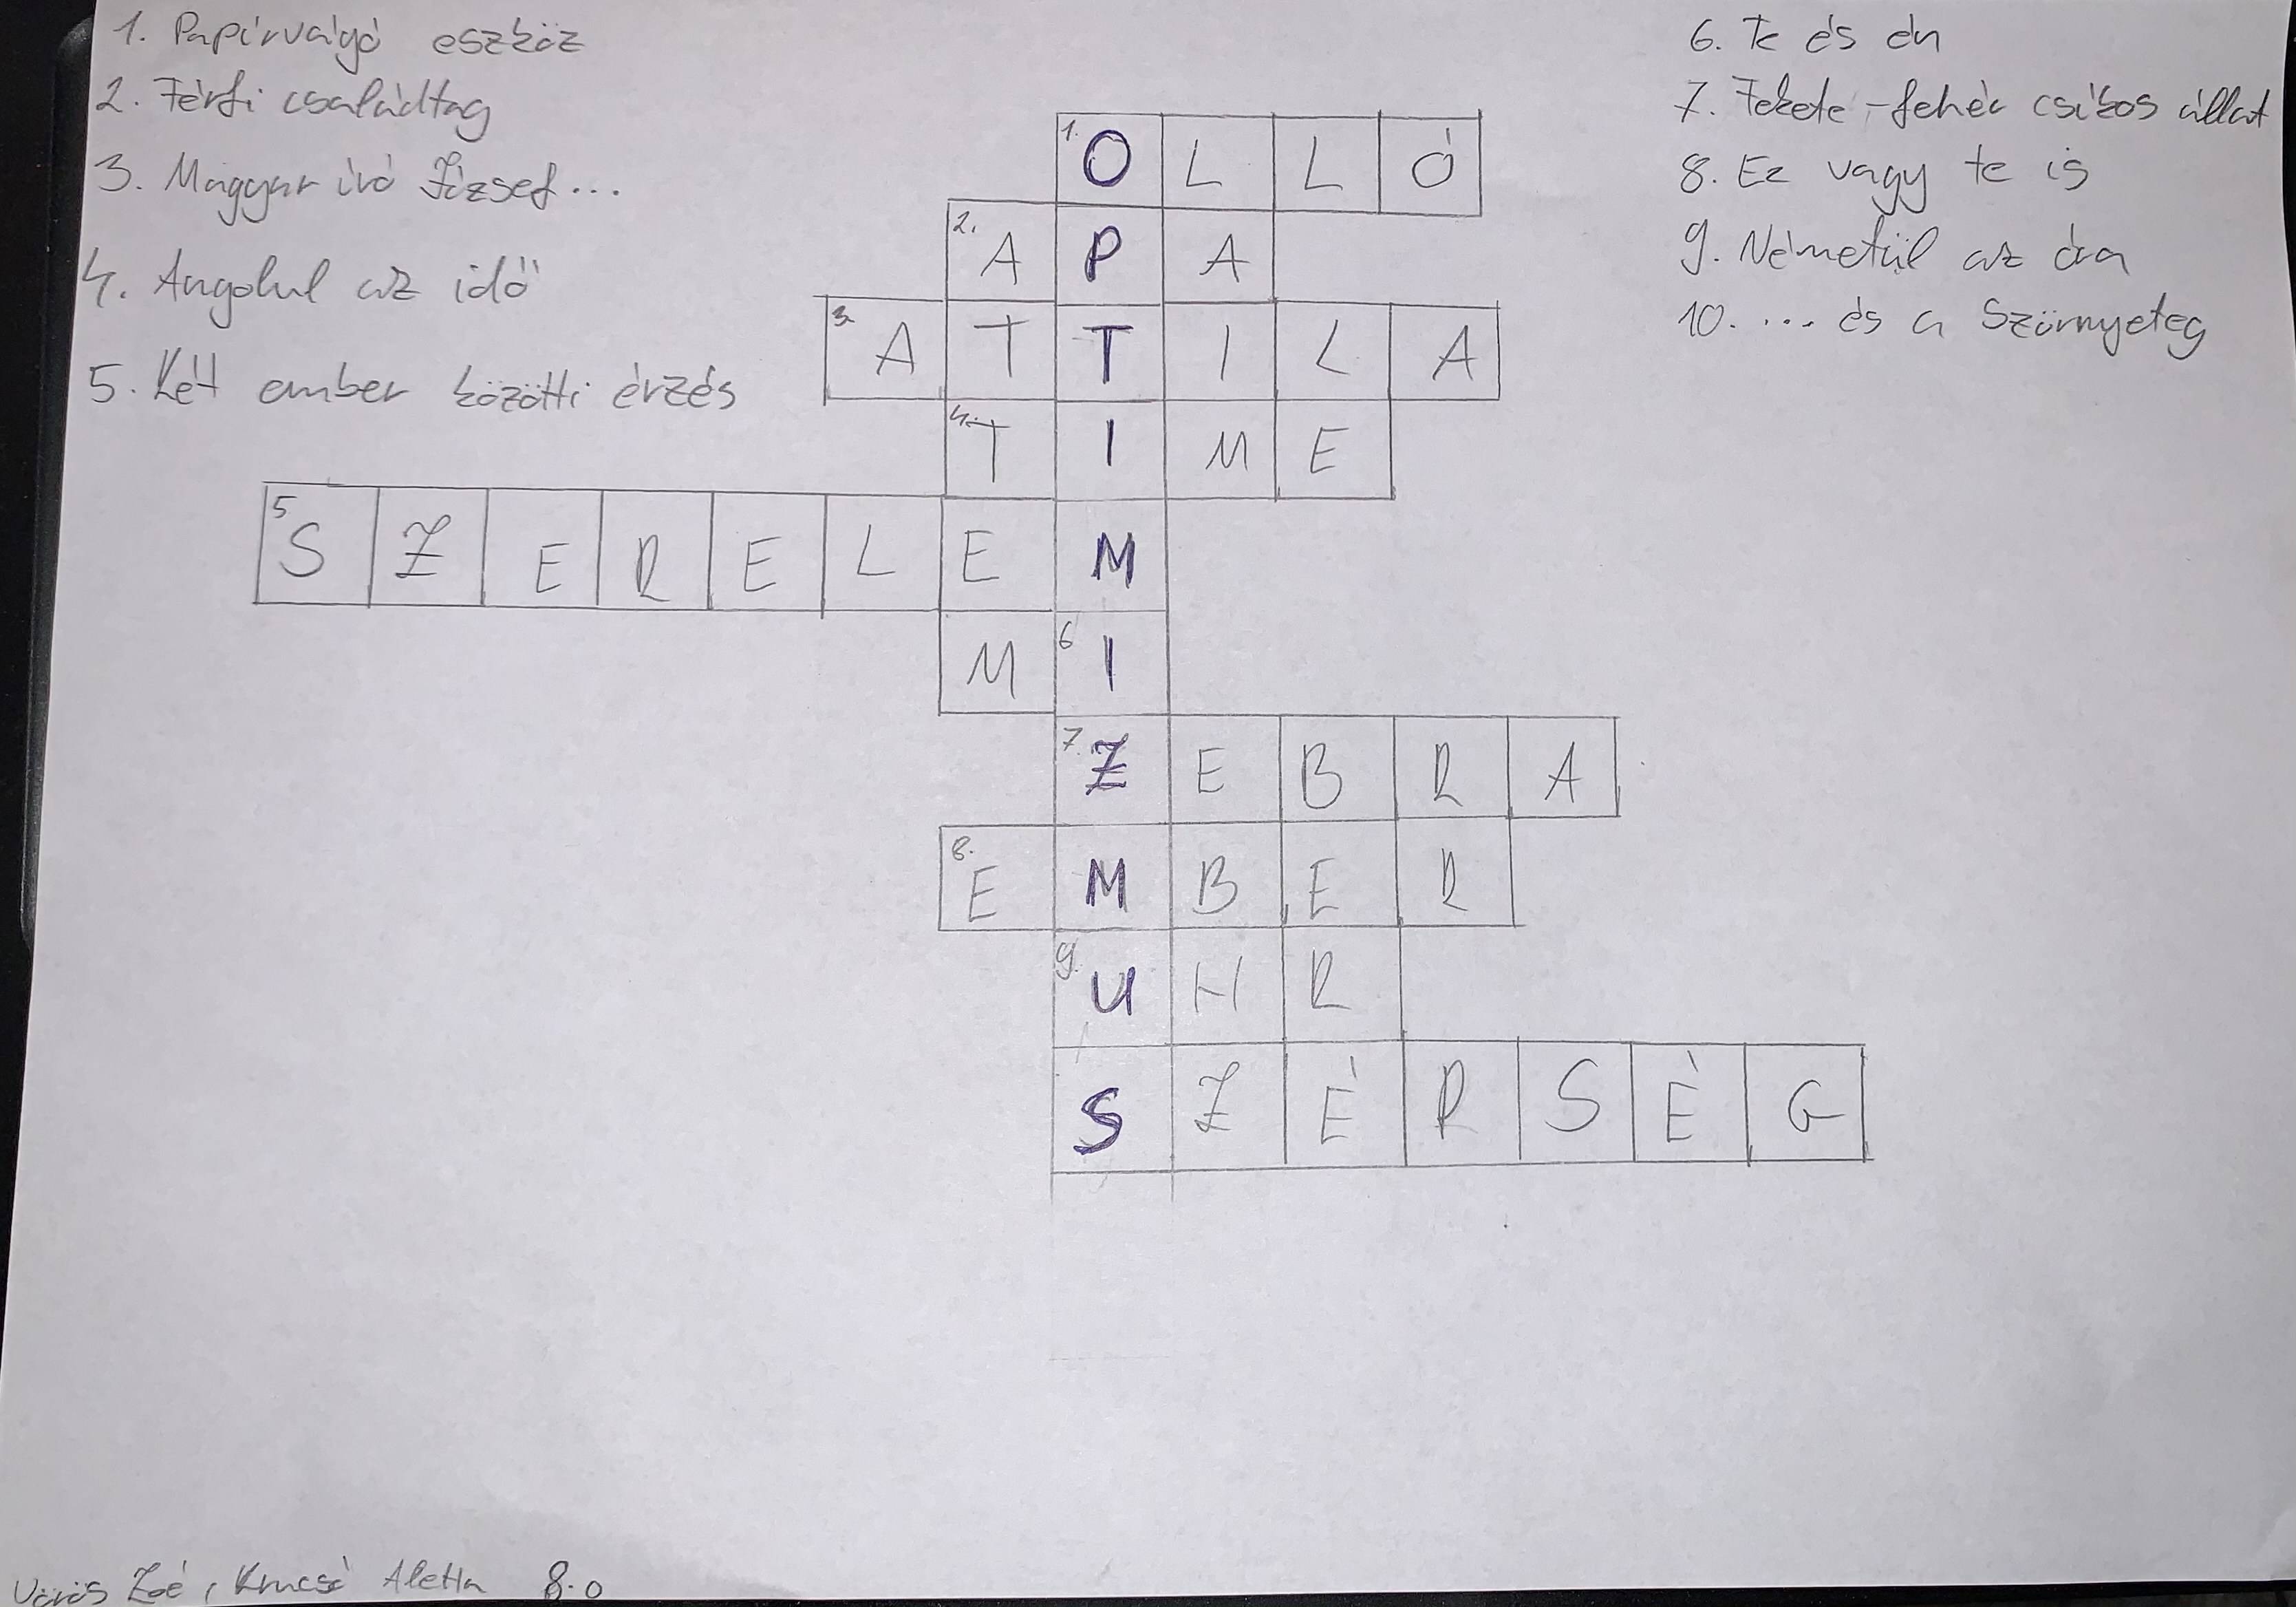 1. Papírvágó eszköz
2. Férfi családtag
3. Magyar író József...
4. Angolul az idő
5. Két ember közötti érzés
6. Te és én
7. Fekete-fehér csíkos állat
8. Ez vagy te is
9. Németül az óra
10. ... és a Szörnyeteg
1. O L L Ó
2. A P A
3. A T T I L A
4. T I M E
5 S Z E R E L E M
M 6 I
7. Z E B R A
8. E M B E R
9. U H R
S Z É P S É G
Vörös Zoé, Krucsó Aletta 8.o